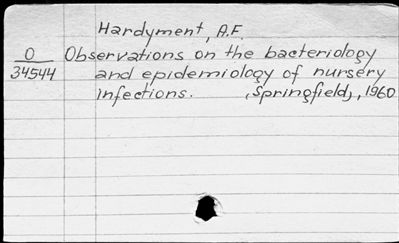 Hardyment, A.F.
O Observations on the bacteriology
34544 and epidemiology of nursery
infections. (Springfield), 1960